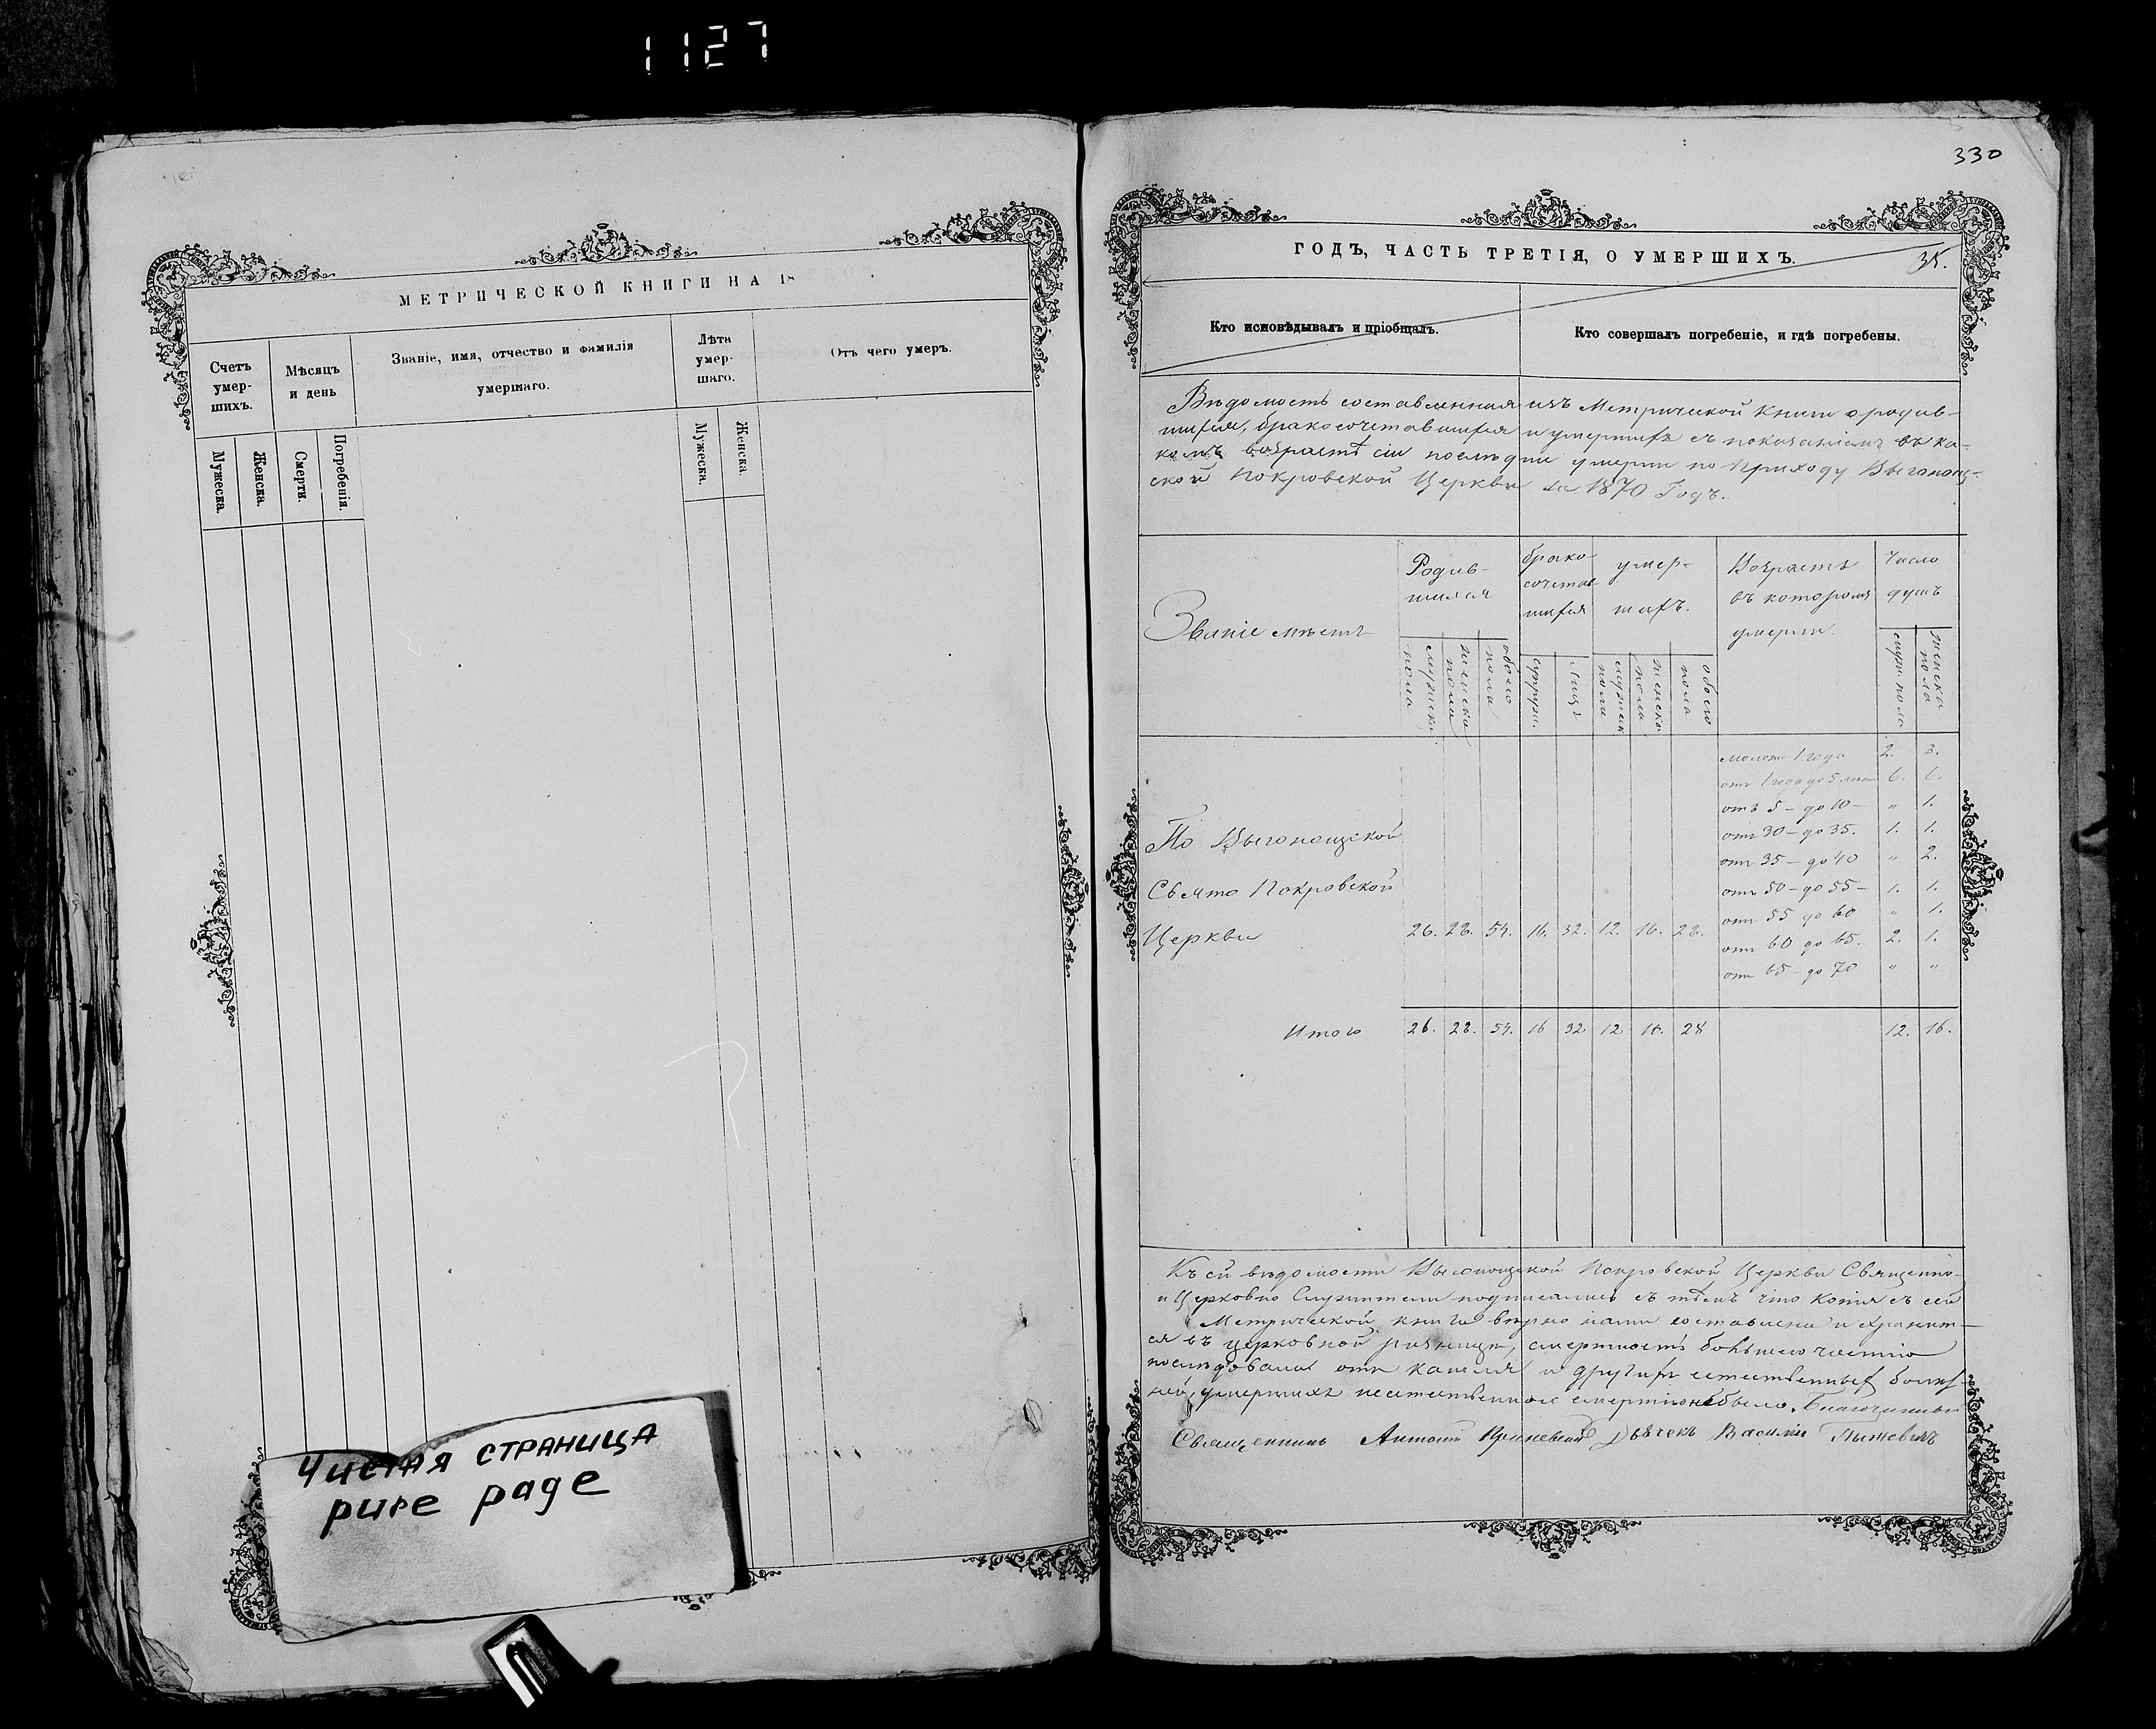 1127
МЕТРИЧЕСКОЙ КНИГИ НА 18
Счетъ умер-шихъ.
Мѣсяцъ и день
Званіе, имя, отчество и фамилія умершаго.
Лѣта умер-шаго.
Отъ чего умеръ.
Мужеска.
Женска.
Смерти.
Погребенія.
Мужеска.
Женска.
Чистая страница
pure page
330
ГОДЪ, ЧАСТЬ ТРЕТІЯ, О УМЕРШИХЪ.
35.
Кто исповѣдывалъ и пріобщалъ.
Кто совершалъ погребеніе, и гдѣ погребены.
Вѣдомость составленная изъ Метрической Книги о родив-
шихся, бракосочетавшихся и умершихъ съ показаніемъ въ ка-
комъ возрастѣ сіи послѣдніи умерли по Приходу Выгонощ-
ской Покровской Церкви за 1870 Годъ.
Званіе мѣстъ
Родив-
шихся
брако-
сочетав-
шихся
умер-
шихъ.
Возрастъ
въ которомъ
умерли.
Число
душъ
мужеска пола
женска пола
обоего пола
супруж.
лицъ
мужеск пола
женска пола
обоего пола
муж. пола
женска пола
моложе 1 года 2. 3.
отъ 1 года до 5 лѣтъ 6. 6.
отъ 5 – до 10 – " 1.
отъ 30 – до 35. 1. 1.
отъ 35 – до 40 " 2.
отъ 50 – до 55 – 1. 1.
отъ 55 до 60 " 1.
отъ 60 до 65. 2. 1.
отъ 65 – до 70 " "
По Выгонощской
Свято Покровской
Церкви 26. 28. 54. 16. 32. 12. 16. 28.
Итого 26. 28. 54. 16 32 12 16. 28 12. 16.
Къ сей вѣдомости Выгонощской Покровской Церкви Священно-
и Церковно Служители подписались съ тѣмъ что копія съ сей
Метрической книги вѣрно нами составлена и хранит-
ся въ церковной ризницѣ, смертность большею частію
послѣдовала отъ кашля и другихъ естественныхъ болѣз-
ней, умершихъ неестественною смертію небыло.
Священникъ Антоній Дьячекъ Василій